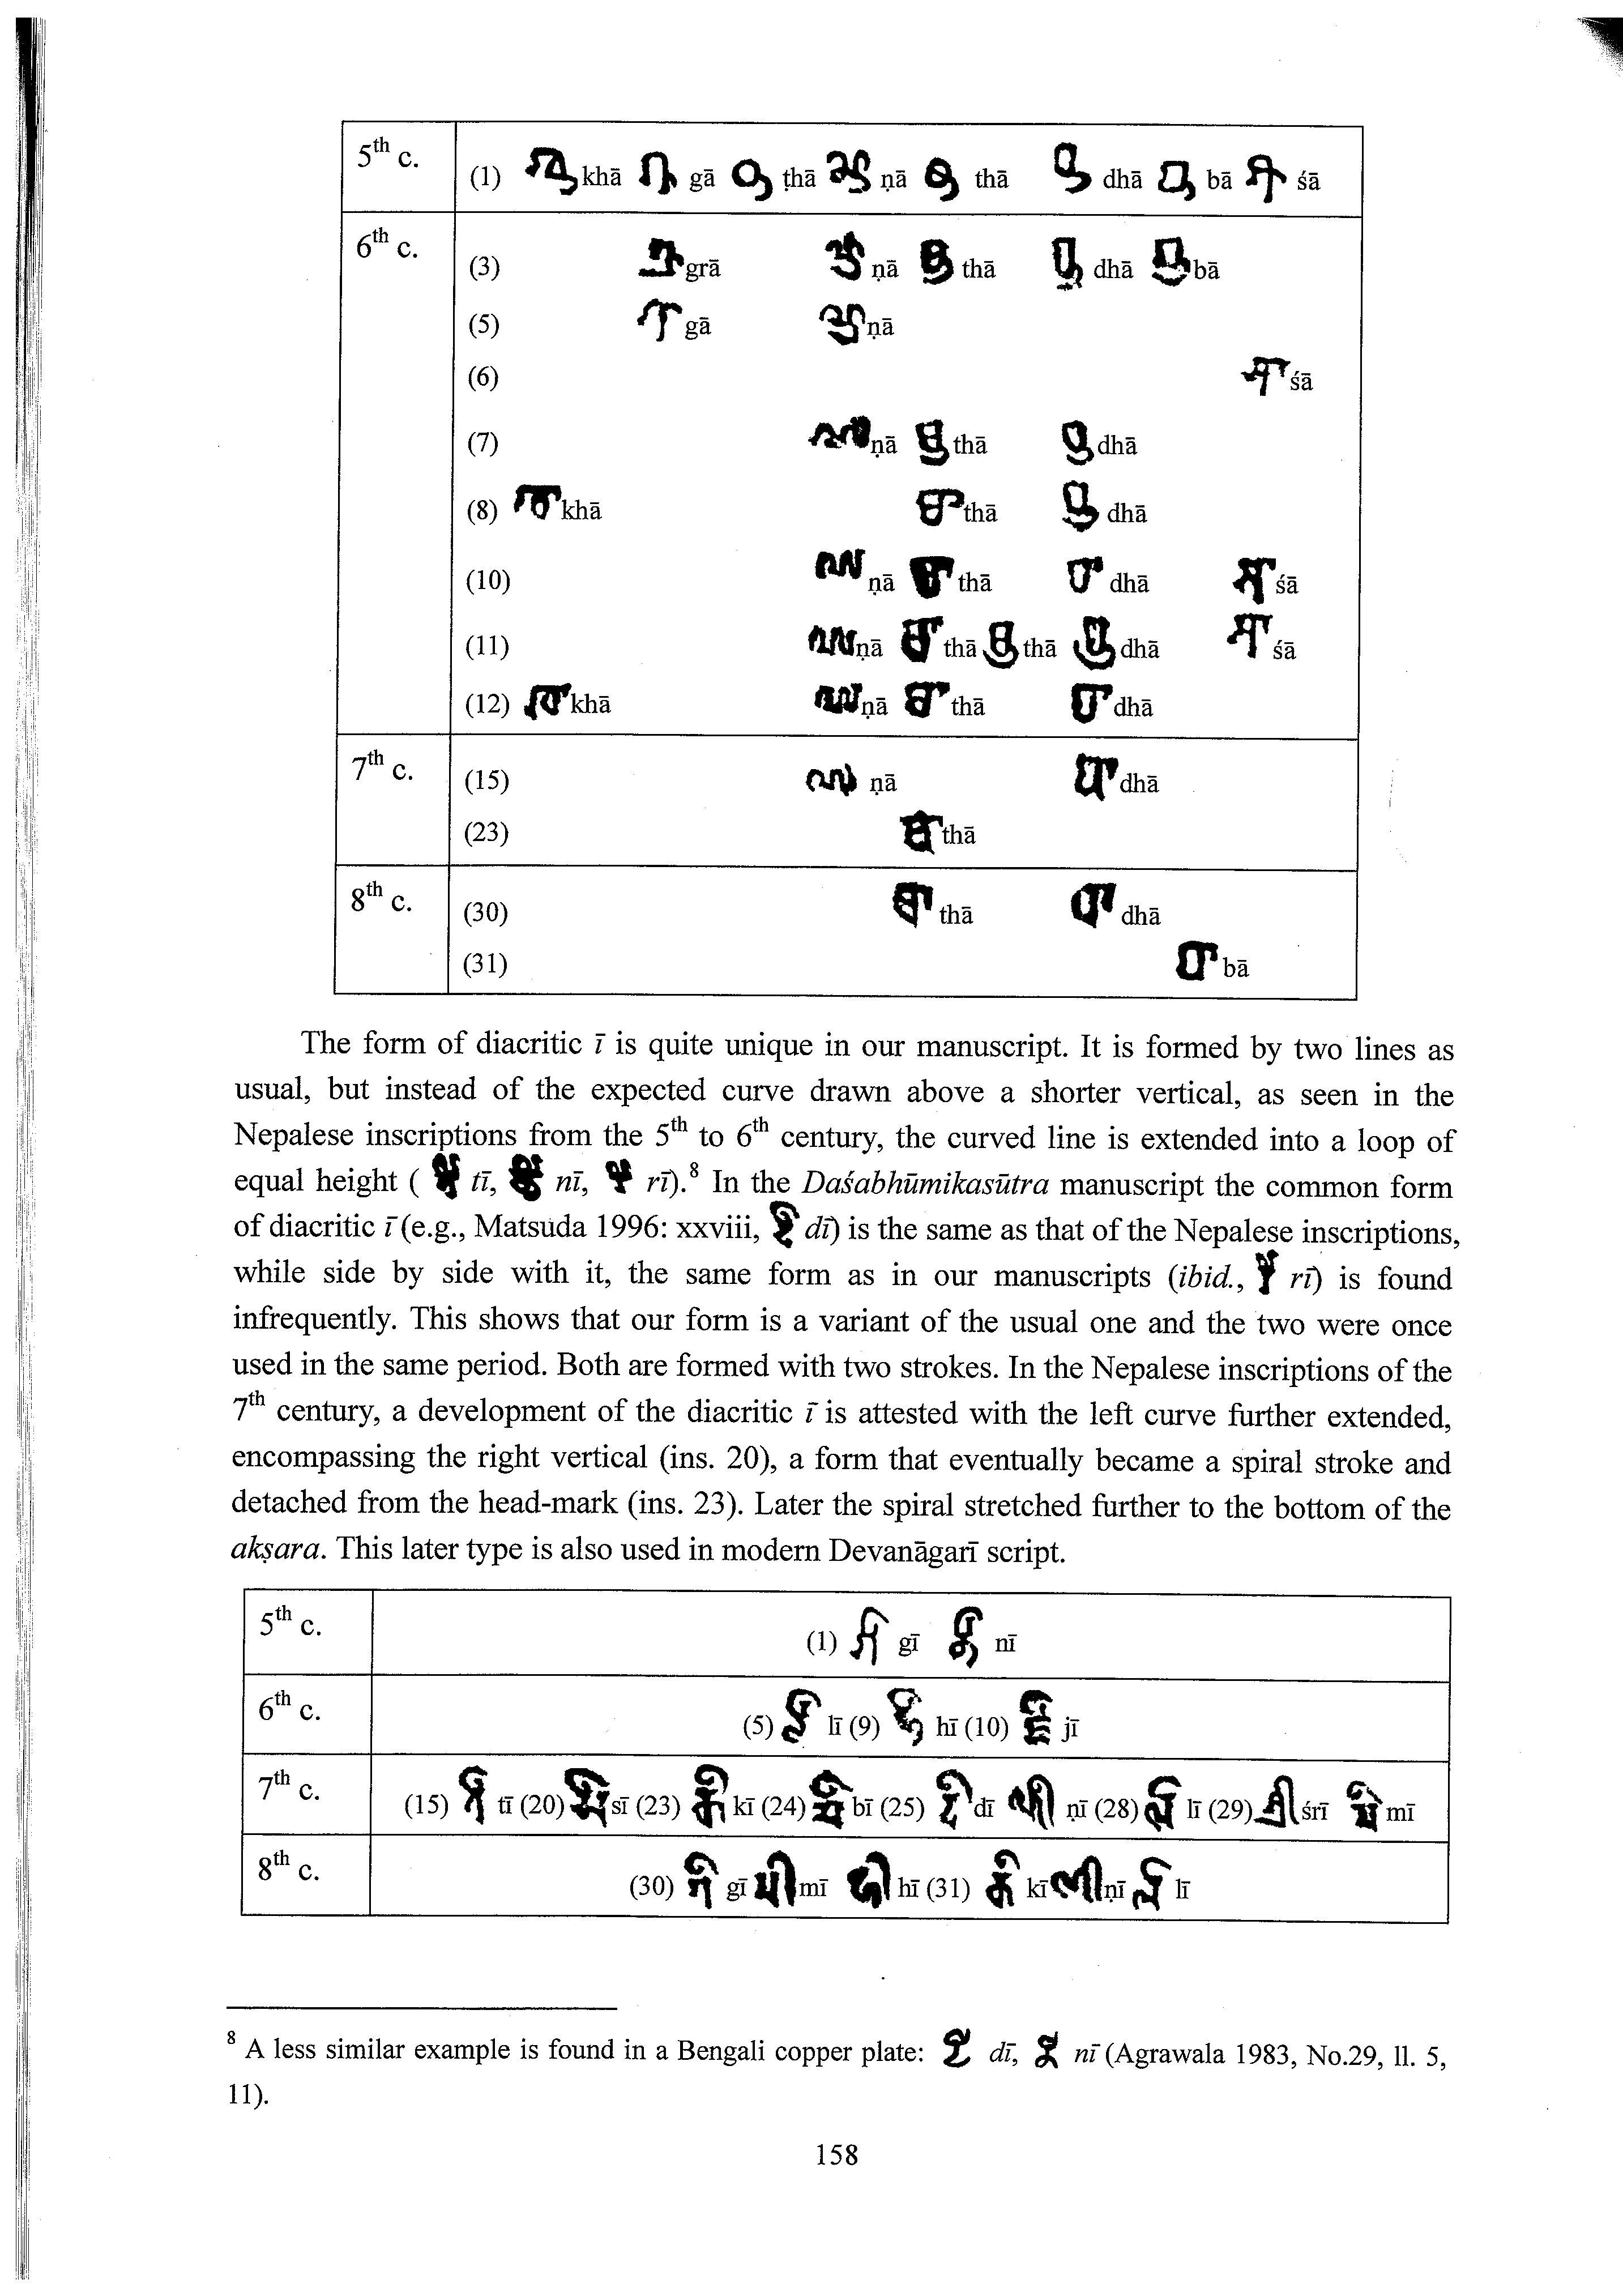 5th c. (1) khā gā ṭhā ṇā thā dhā bā śā
6th c. (3) grā ṇā thā dhā bā
(5) gā ṇā
(6) śā
(7) ṇā thā dhā
(8) khā thā dhā
(10) ṇā thā dhā śā
(11) ṇā thā thā dhā śā
(12) khā ṇā thā dhā
7th c. (15) ṇā dhā
(23) thā
8th c. (30) thā dhā
(31) bā
The form of diacritic ī is quite unique in our manuscript. It is formed by two lines as
usual, but instead of the expected curve drawn above a shorter vertical, as seen in the
Nepalese inscriptions from the 5th to 6th century, the curved line is extended into a loop of
equal height ( tī, nī, rī).8 In the Daśabhūmikasūtra manuscript the common form
of diacritic ī (e.g., Matsuda 1996: xxviii, dī) is the same as that of the Nepalese inscriptions,
while side by side with it, the same form as in our manuscripts (ibid., rī) is found
infrequently. This shows that our form is a variant of the usual one and the two were once
used in the same period. Both are formed with two strokes. In the Nepalese inscriptions of the
7th century, a development of the diacritic ī is attested with the left curve further extended,
encompassing the right vertical (ins. 20), a form that eventually became a spiral stroke and
detached from the head-mark (ins. 23). Later the spiral stretched further to the bottom of the
akṣara. This later type is also used in modern Devanāgarī script.
5th c. (1) gī nī
6th c. (5) lī (9) hī (10) jī
7th c. (15) tī (20) sī (23) kī (24) bī (25) dī ṇī (28) lī (29) śrī mī
8th c. (30) gī mī hī (31) kī ṇī lī
8 A less similar example is found in a Bengali copper plate: dī, nī (Agrawala 1983, No.29, ll. 5,
11).
158